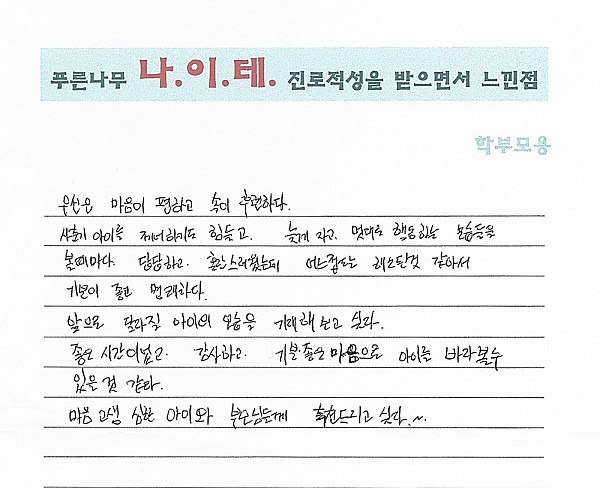 푸른나무 나.이.테. 진로적성을 받으면서 느낀점
학부모용
우선은 마음이 편하고 속이 후련하다.
사춘기 아이를 제어하기도 힘들고. 늦게 자고. 멋대로 행동하는 모습들을
볼때마다. 답답하고. 혼란스러웠는데 어느정도는 해소된것 같아서
기분이 좋고 명쾌하다.
앞으로 달라질 아이의 모습을 기대해 보고 싶다.
좋은 시간이었고. 감사하고. 기분좋은 마음으로 아이를 바라볼수
있을것 같다.
마음 고생 심한 아이와 부모님들께 추천드리고 싶다.~